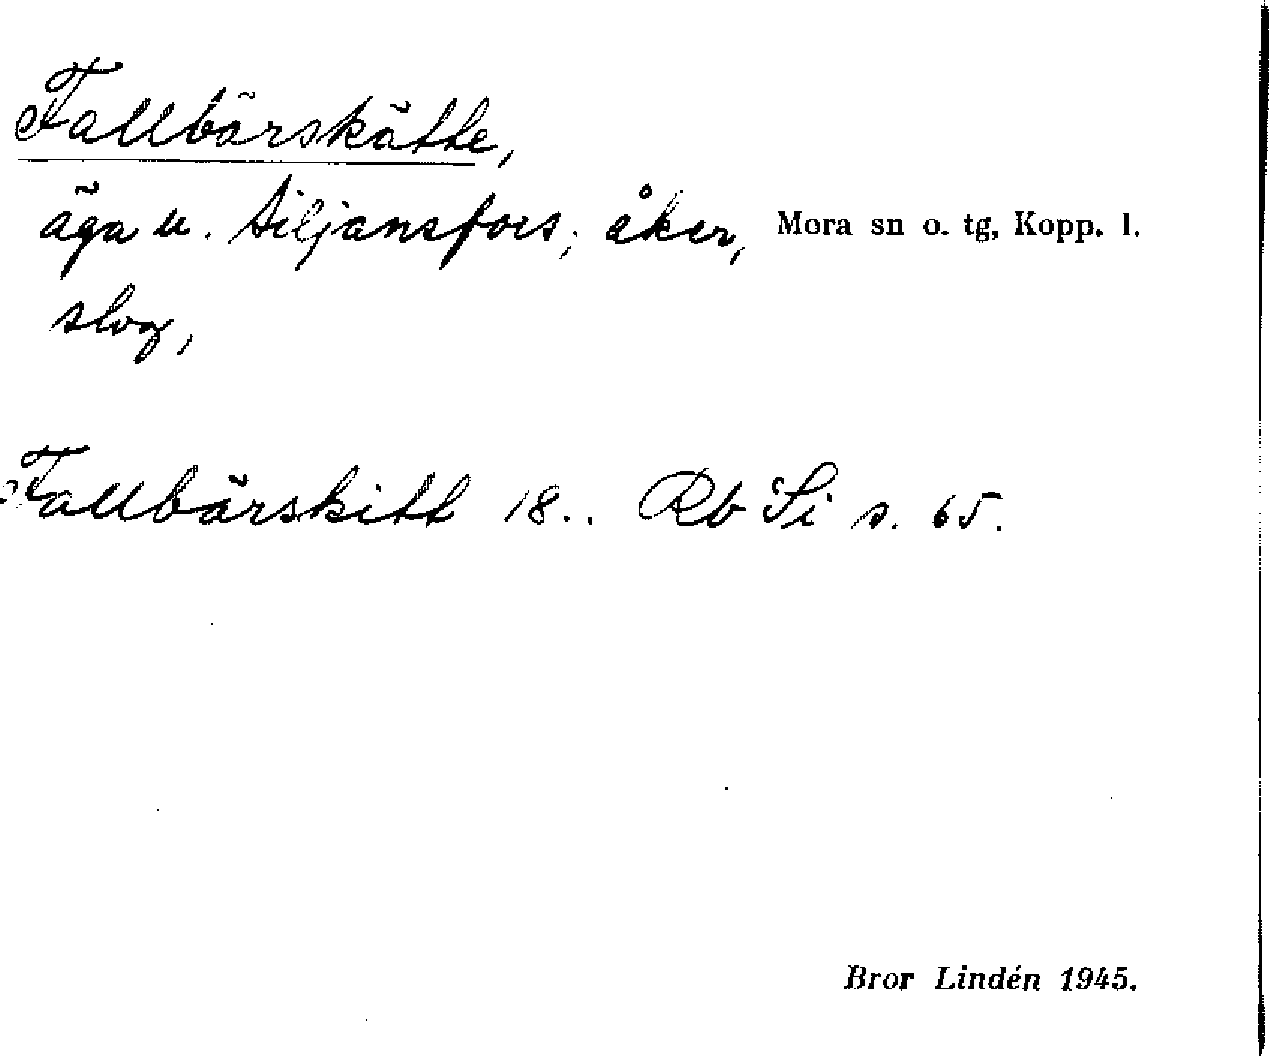 Fallbärskätte,
äga u. Siljansfors; åker, Mora sn o. tg, Kopp. l.
slog,
Fallbärskitt 18.. Rb Si s. 65.
Bror Lindén 1945.